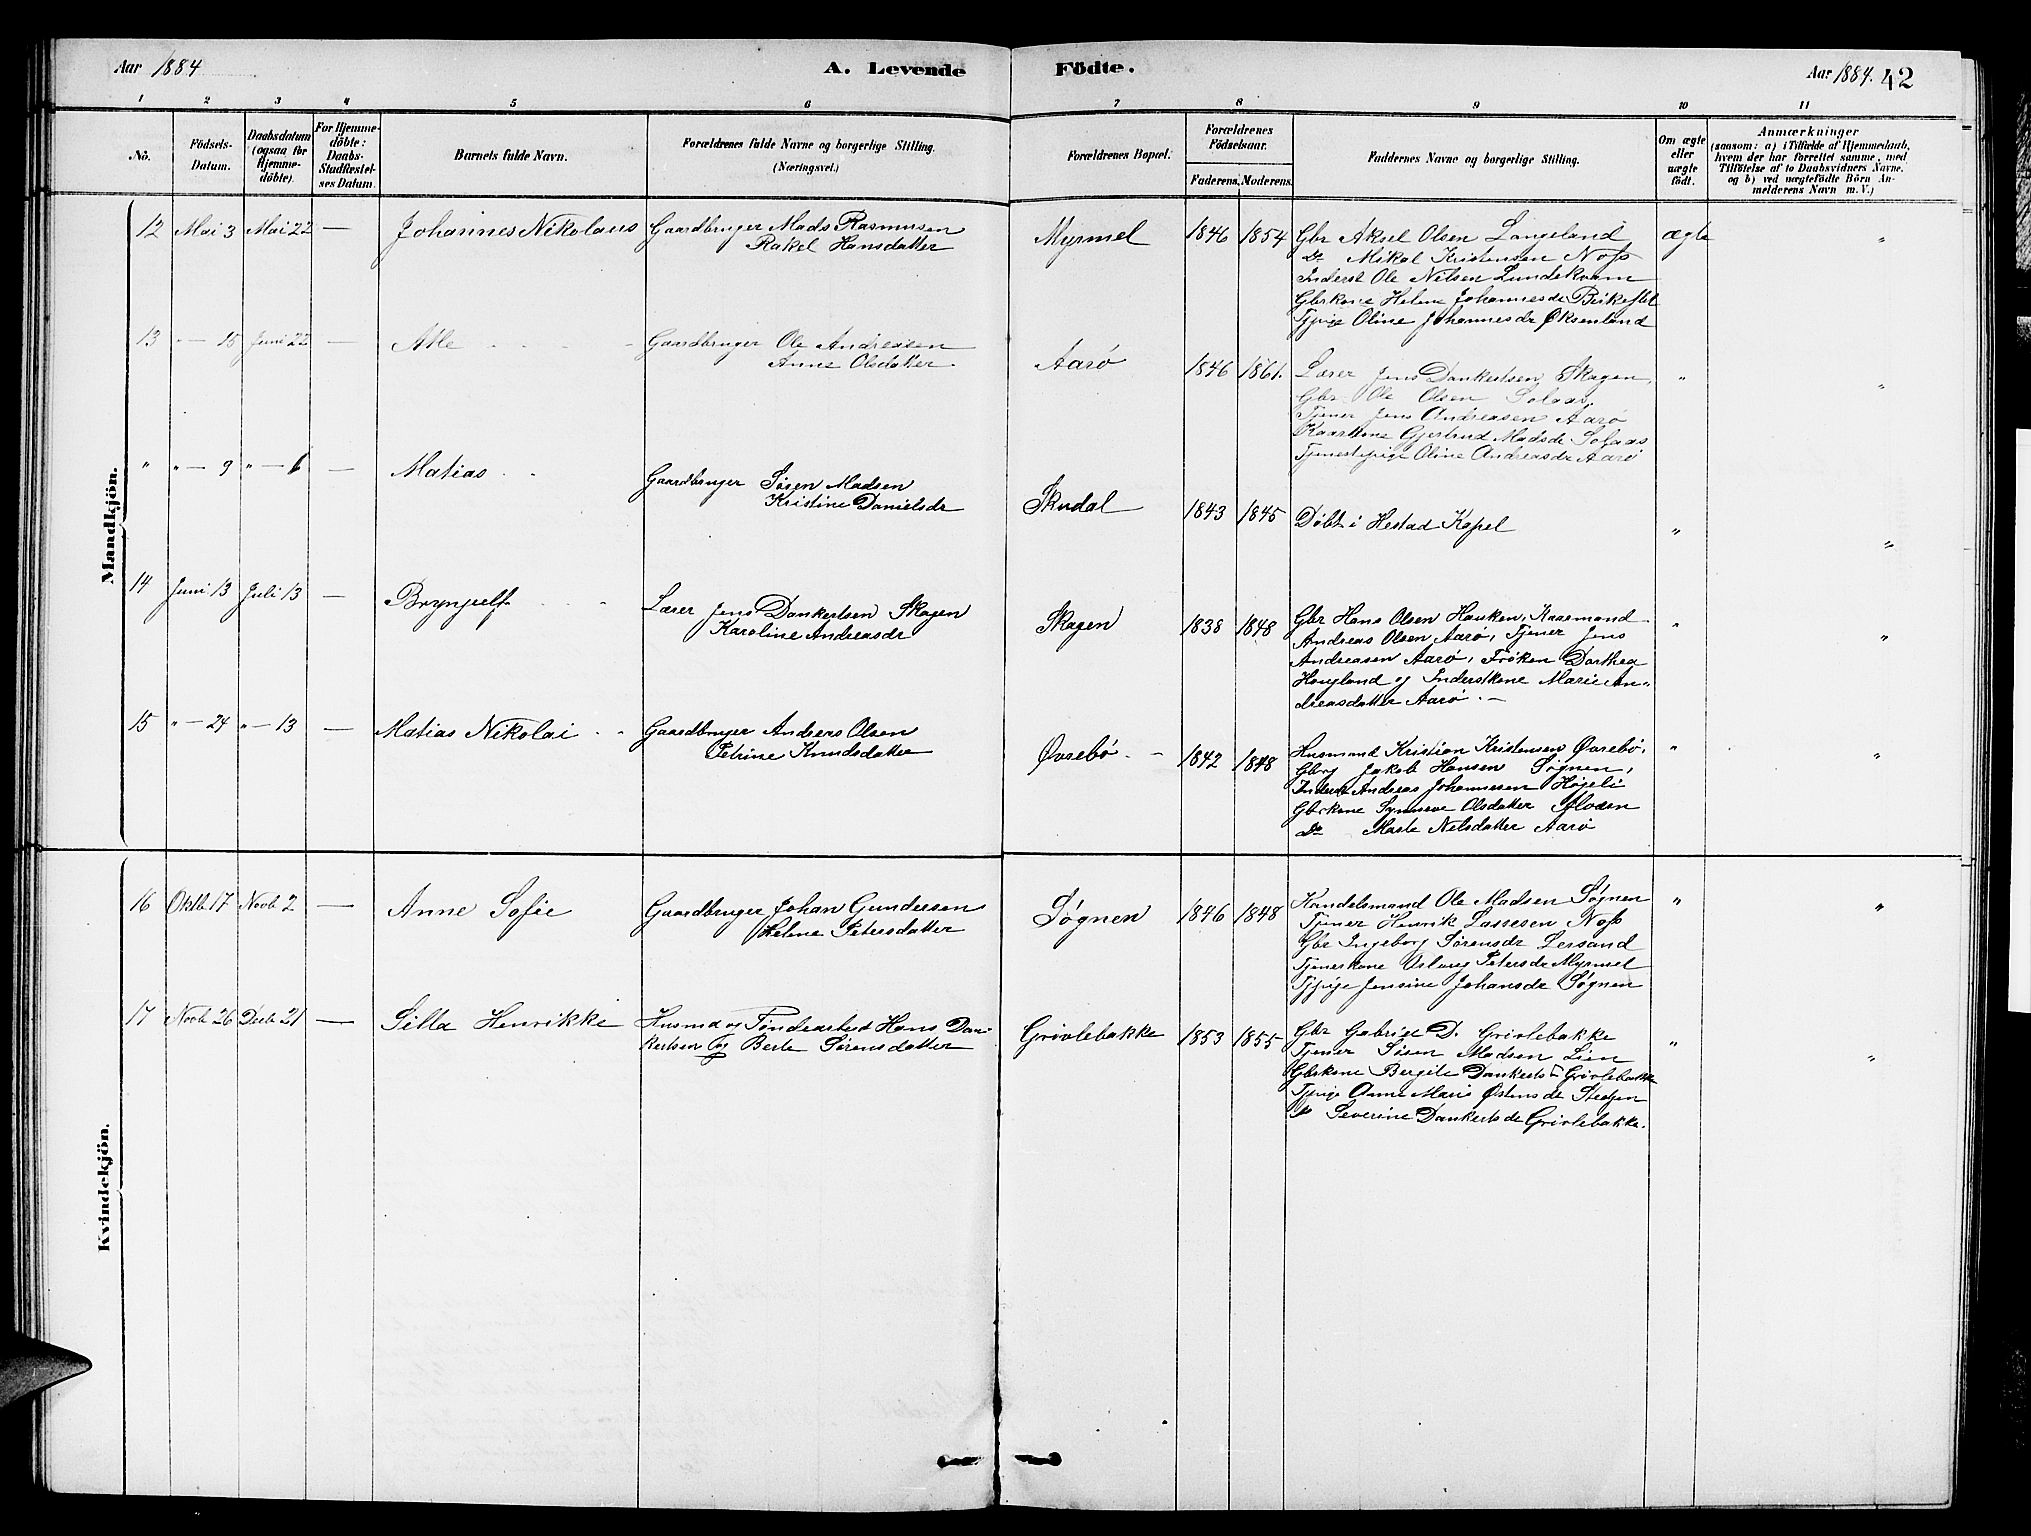 Aar 1884
A. Levende Födte.
Aar 1884. 42
1 2 3 4 5 6 7 8 9 10 11
No.
Födsels-Datum.
Daabsdatum (ogsaa for Hjemme-döbte).
For Hjemme-döbte: Daabs-Stadfæstel-ses Datum.
Barnets fulde Navn.
Forældrenes fulde Navne og borgerlige Stilling. (Næringsvei.)
Forældrenes Bopæl.
Forældrenes Födselsaar.
Faderens. Moderens.
Faddernes Navne og borgerlige Stilling.
Om ægte eller uægte födt.
Anmærkninger
(saasom: a) i Tilfælde af Hjemmedaab,
hvem der har forrettet samme, med
Tilföielse af to Daabsvidners Navne.
og b) ved uægtefödte Börn An-
melderens Navn m. V.)
Mandkjön.
12 Mai 3 Mai 22 — Johannes Nikolaus Gaardbruger Mads Rasmussen
Rakel Hansdatter
Myrmel 1846 1854 Gbr Aksel Olsen Langeland ægte "
Do Mikal Kristensen Noss
Inderst Ole Nilsen Lundekvam
Gbrkone Helene Johannesdr Birkeflet
Tjpige Oline Johannesdr Øksenland
13 " — 15 Juni 22 — Atle Gaardbruger Ole Andreasen
Anne Olsdatter
Aarø 1846 1861. Lærer Jens Dankertsen Skagen, " "
Gbr Ole Olsen Solaas,
Tjener Jens Andreasen Aarø
Kaarkone Gjertrud Madsdr Solaas
Tjenestepige Oline Andreasdr Aarø
" " — 9 " — 6 — Matias Gaardbruger Søren Madsen
Kristine Danielsdr
Skudal 1843 1845 Døbt i Hestad Kapel " "
14 Juni 13 Juli 13 — Brynjulf Lærer Jens Dankertsen Skagen
Karoline Andreasdr
Skagen 1838 1848 Gbr Hans Olsen Hauken, Kaarmand " "
Andreas Olsen Aarø, Tjener Jens
Andreasen Aarø, Frøken Dorthea
Haugland og Inderstkone Marie An-
dreasdatter Aarø. —
15 " — 24 " — 13 — Matias Nikolai Gaardbruger Anders Olsen
Petrine Knudsdatter
Øvrebø — 1842 1848 Husmand Kristian Kristensen Øvrebø, " "
Gbrg Jakob Hansen Søgnen,
Inderst Andreas Johannessen Højeli
Gbrkone Synneve Olsdatter
Do Marte Nilsdatter Aarø
Kvindekjön.
16 Oktb 17 Novb 2 — Anne Sofie Gaardbruger Johan Gundersen
Helene Petersdatter
Søgnen 1846 1848 Handelsmand Ole Madsen Søgnen " "
Tjener Henrik Lassesen Noss
Gbr Ingeborg Sørensdr Lersand
Tjenerkone Petersdr Myrmel
Tjpige Jensine Johansdr Søgnen
17 Novb 26 Decb 21 — Silla Henrikke Husmd og Tøndearbeid Hans Dan-
kertsen og Berte Sørensdatter
Grivlebakke 1853 1855 Gbr Gabriel D. Grivlebakke " "
Tjener Søren Madsen Lien
Gbrkone Bergite Dankerts Grivlebakke
Tjpige Anne Marie Østensdr Stedjen
Do Severine Dankertsdr Grivlebakke.